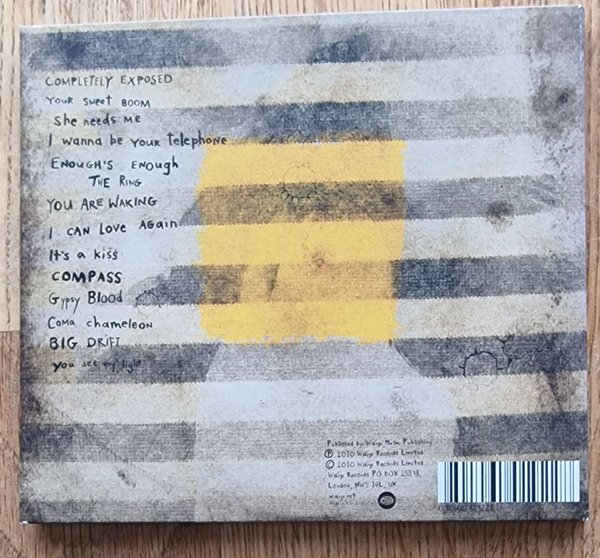 COMPLETELY EXPOSED
YOUR SWEET BOOM
She needs ME
I wanna be YOUR telephone
ENOUGH'S ENOUGH
THE RING
YOU ARE WAKING
I CAN LOVE AGAIN
It's a kiss
COMPASS
Gypsy Blood
Coma chameleon
BIG DRIFT
You see my light
Published by Warp Music Publishing
Ⓟ 2010 Warp Records Limited
© 2010 Warp Records Limited
Warp Records PO BOX 25378,
London, NW5 1GL, UK
warp.net